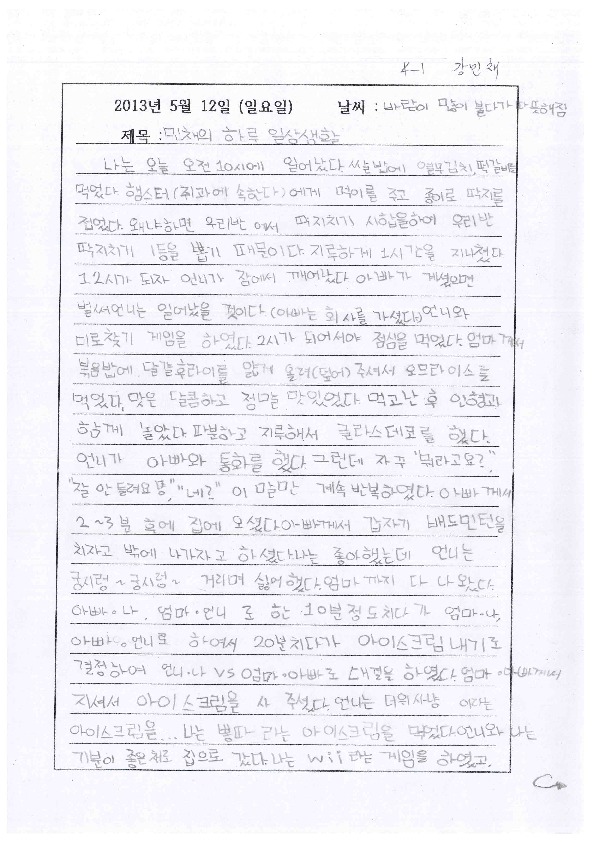 4-1 강민채
2013년 5월 12일 (일요일) 날씨 : 바람이 많이 불다가 따뜻해짐
제목 : 민채의 하루 일상생활
나는 오늘 오전 10시에 일어났다. 쌀밥에 열무김치, 떡갈비를
먹었다 햄스터(쥐과에 속한다)에게 먹이를 주고 종이로 딱지를
접었다. 왜냐하면 우리반에서 딱지치기 시합을하여 우리반
딱지치기 1등을 뽑기 때문이다. 지루하게 1시간을 지나쳤다
12시가 되자 언니가 잠에서 깨어났다 아빠가 계셨으면
벌써언니는 일어났을 것이다 (아빠는 회사를 가셨다) 언니와
미로찾기 게임을 하였다. 2시가 되어서야 점심을 먹었다. 엄마께서
볶음밥에 달걀후라이를 얇게 올려(덮어)주셔서 오므라이스를
먹었다, 맛은 달콤하고 정말 맛있었다 먹고난 후 인형과
함께 놀았다 따분하고 지루해서 글라스데코를 했다.
언니가 아빠와 통화를 했다 그런데 자꾸 "뭐라고요?",
"잘 안 들려요 ," "네?" 이 말만 계속 반복하였다. 아빠께서
2~3분 후에 집에 오셨다. 아빠께서 갑자기 배드민턴을
치자고 밖에 나가자고 하셨다 나는 좋아했는데 언니는
궁시렁~궁시렁~ 거리며 싫어했다. 엄마까지 다 나왔다.
아빠·나, 엄마·언니 로 하는 10분정도치다가 엄마·나,
아빠·언니로 하여서 20분치다가 아이스크림내기로
결정하여 언니·나 VS 엄마·아빠로 대결을 하였다. 엄마·아빠께서
지셔서 아이스크림을 사 주셨다 언니는 더위사냥 이라는
아이스크림을... 나는 라는 아이스크림을 먹었다 언니와 나는
기분이 좋은채로 집으로 갔다. 나는 wii 라는 게임을 하였고,